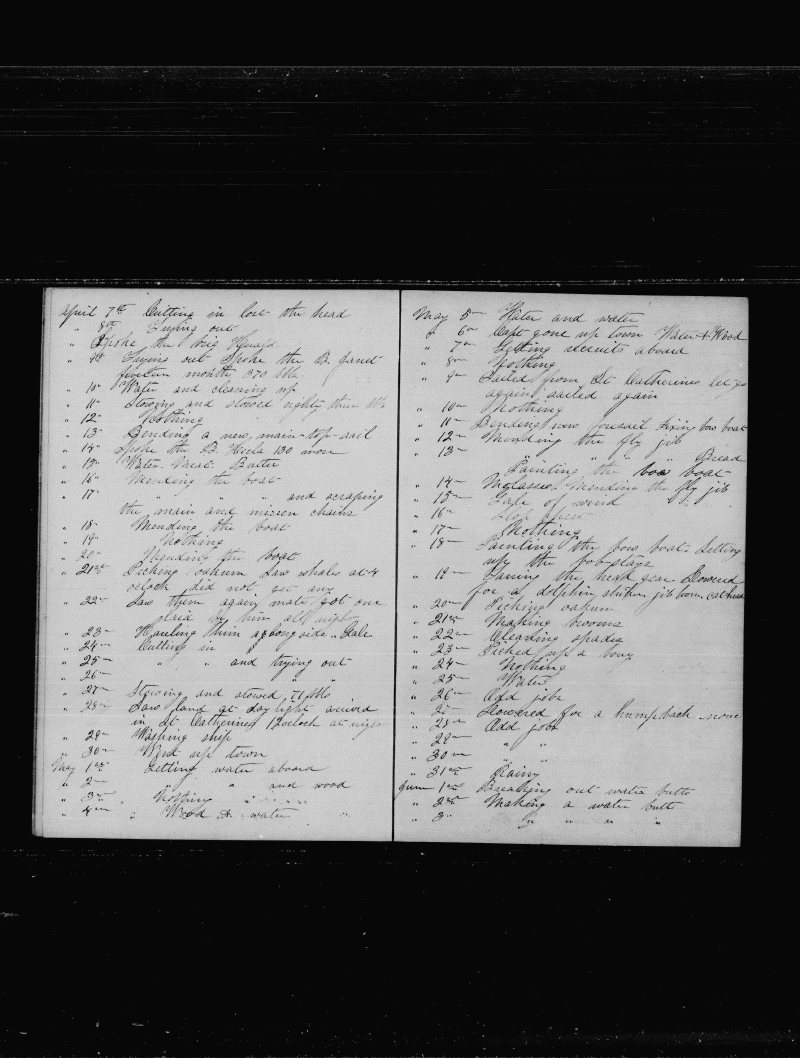 April 7th Cutting in lost the head
" 8th Trying out
" Spoke the brig Herald
" 9th Trying out Spoke the B.
fifteen months 370 bbls
" 10th Water and cleaning up
" 11th Stowing and stowed eighty three bbls
" 12th Nothing
" 13th Bending a new main-top-sail
" 14th Spoke the B. 130 more
" 15th Water. Meat. Butter
" 16th Mending the boat
" 17th " " " and scraping
the main and mizzen chains
" 18th Mending the boat
" 19th Nothing
" 20th Mending the boat
" 21st Picking oakum Saw whales at 4
oclock did not get any
" 22nd Saw them again mate got one
laid by him all night
" 23rd Hauling him along side. Gale
" 24th Cutting in
" 25th " " and trying out
" 26th " "
" 27th Stowing and stowed 71 bbls
" 28th Saw land at daylight arrived
in St Catherines 12 oclock at night
" 29th Washing ship
" 30th Went up town
May 1st Getting water aboard
" 2nd " " and wood
" 3rd Nothing
" 4th Wood & water
May 5th Water and water
" 6th Capt gone up town Water & Wood
" 7th Getting recruits aboard
" 8th Nothing
" 9th Sailed from St Catherines let go
again sailed again
" 10th Nothing
" 11th Bending new foresail fixing bow boat
" 12th Mending the fly jib
" 13th " " " " Bread
Painting the bow boat
" 14th Molasses. Mending the fly jib
" 15th Gale of wind
" 16th Slop chest
" 17th Nothing
" 18th Painting the bow boat. Setting
up the fob-stays
" 19th the head gear. Lowered
for a dolphin, striker jib boom. cat head
" 20th Picking oakum
" 21st Making brooms
" 22nd Cleaning spades
" 23rd Picked up a
" 24th Nothing
" 25th Water
" 26th Odd jobs
" 27 Lowered for a humpback none
" 28th Odd jobs
" 29th " "
" 30th " "
" 31st Rainy
June 1st Breaking out water butts
" 2nd Making a water butt
" 3rd " " " "